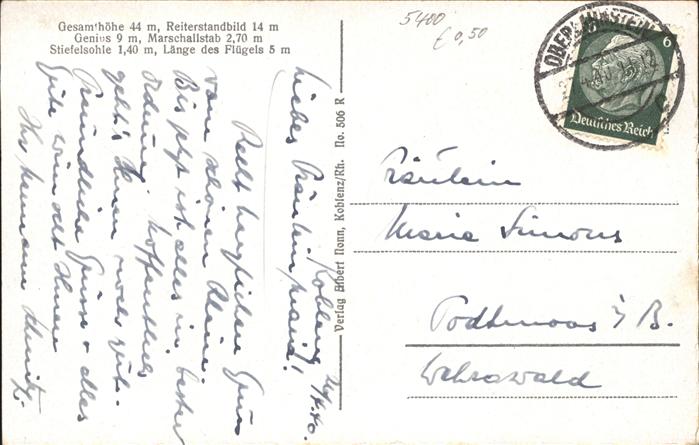 Gesamthöhe 44 m, Reiterstandbild 14 m
Genius 9 m, Marschallstab 2,70 m
Stiefelsohle 1,40 m, Länge des Flügels 5 m
Koblenz,
Liebes Fräulein Maria!
Recht herzlichen Gruss
vom schönen Rhein.
Bis jetzt ist alles in bester
Ordnung. Hoffentlich
geht's Ihnen noch gut.
Freundliche Grüsse & alles
Gute wünscht Ihnen
Ihr Hermann
Verlag Albert Nonn, Koblenz/Rh. No. 506 R
5400
€ 0,50
OBERLAHNSTEIN
6
Deutsches Reich
Fräulein
Maria Simons
Todtmoos i/B.
Wehrawald